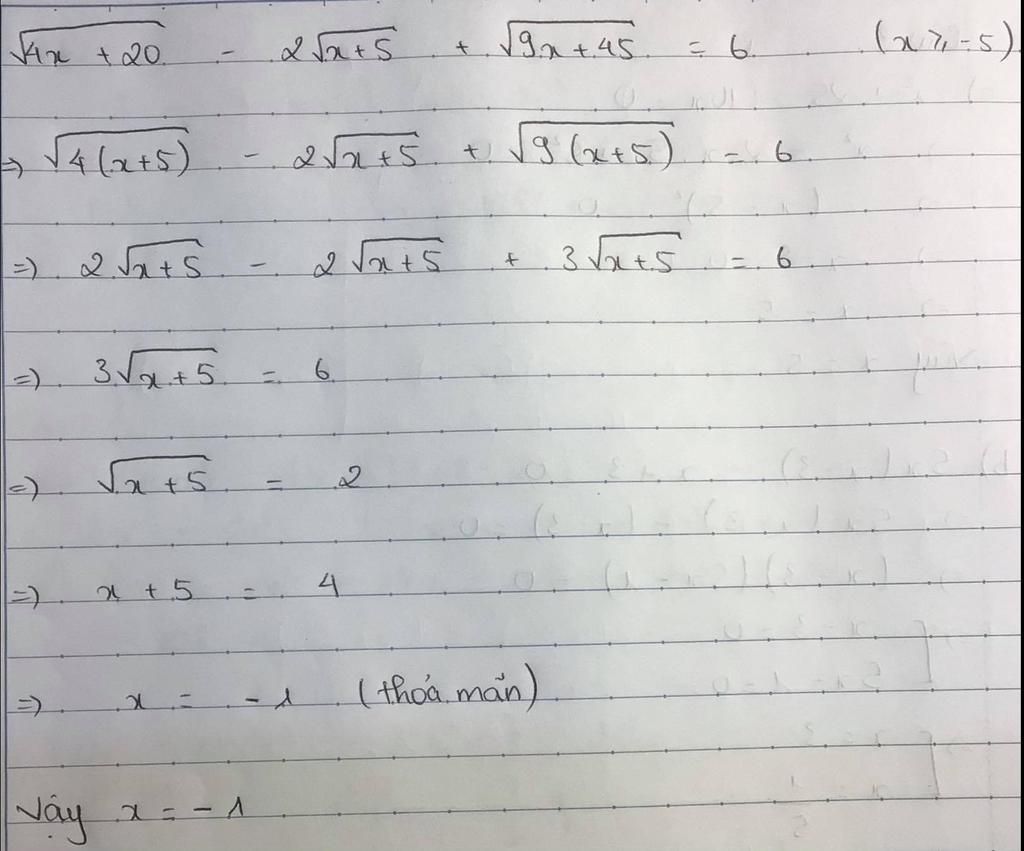 √(4x + 20) - 2√(x+5) + √(9x+45) = 6 (x ⩾ -5)
=> √(4(x+5)) - 2√(x+5) + √(9(x+5)) = 6
=> 2√(x+5) - 2√(x+5) + 3√(x+5) = 6
=> 3√(x+5) = 6
=> √(x+5) = 2
=> x + 5 = 4
=> x = -1 (thoả mãn)
Vậy x = -1